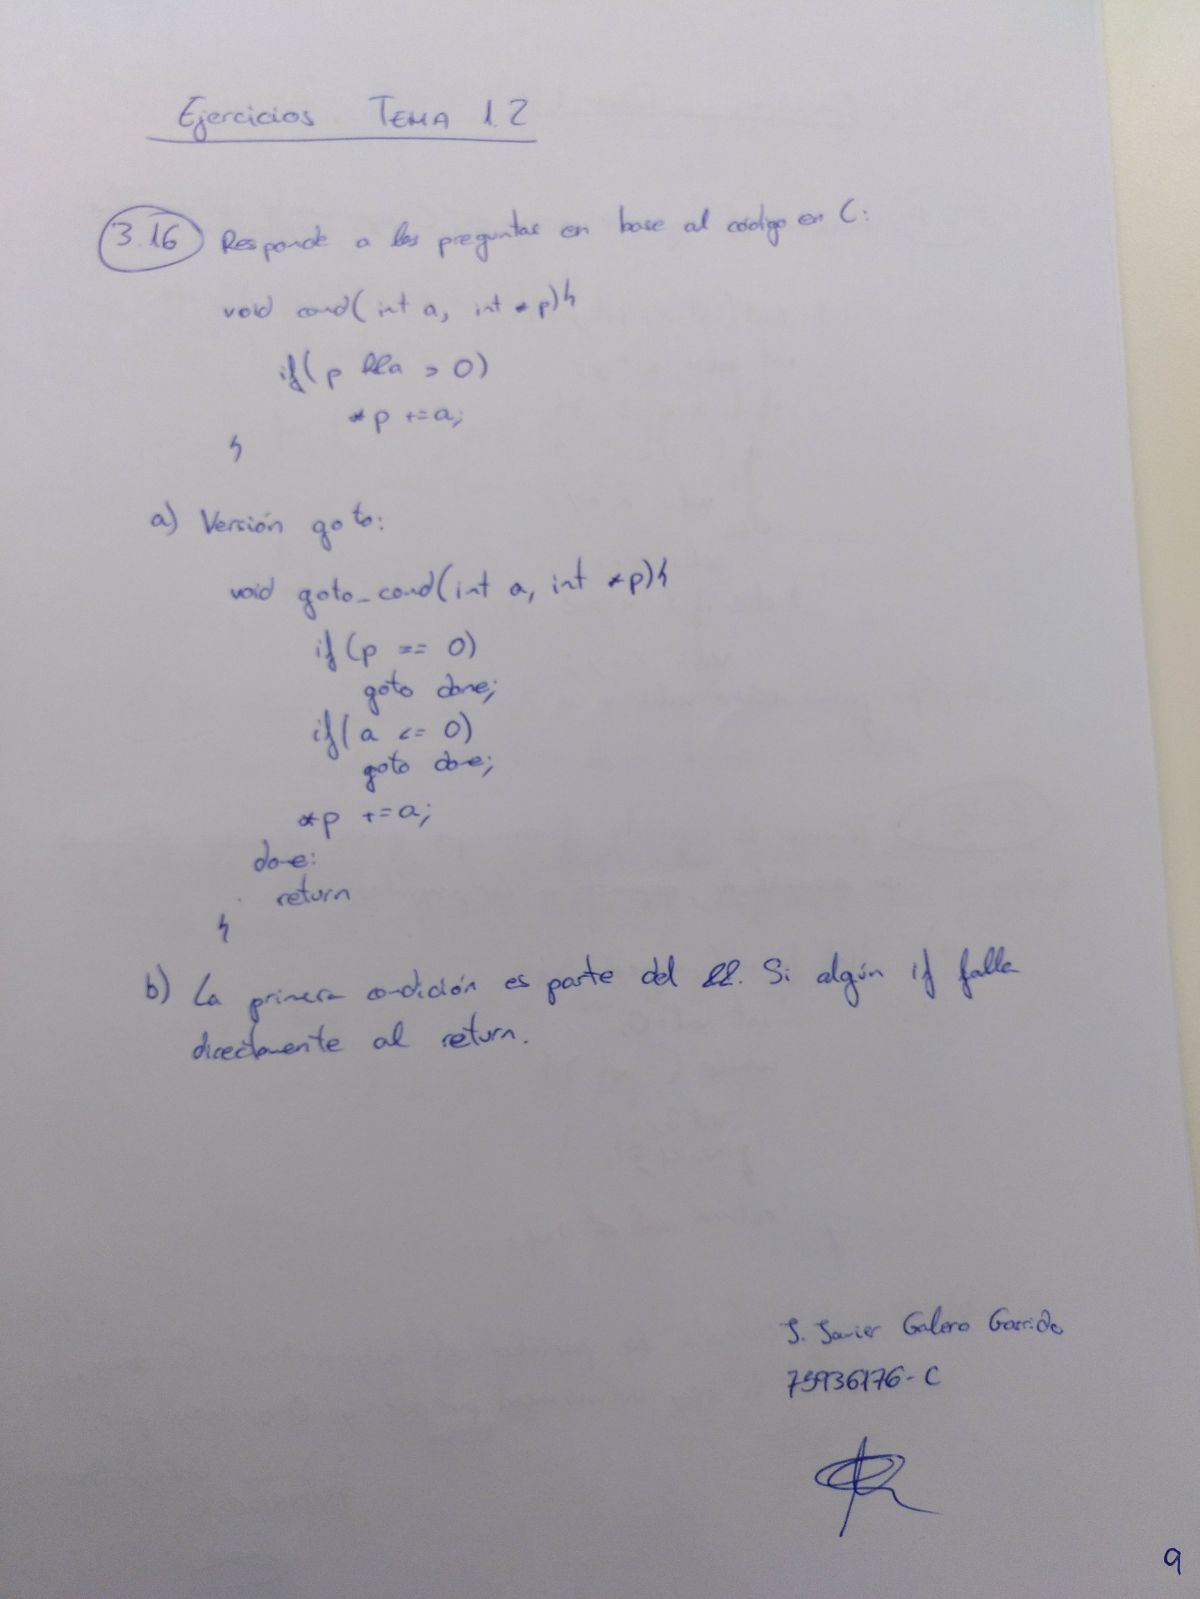 Ejercicios TEMA 1.2
3.16 Responde a las preguntas en base al código en C:
void cond(int a, int *p){
if(p && a > 0)
*p += a;
}
a) Versión goto:
void goto_cond(int a, int *p){
if(p == 0)
goto done;
if(a <= 0)
goto done;
*p += a;
done:
return
}
b) La primera condición es parte del &&. Si algún if falla
directamente al return.
J. Javier Galero Garrido
75936176-C
9